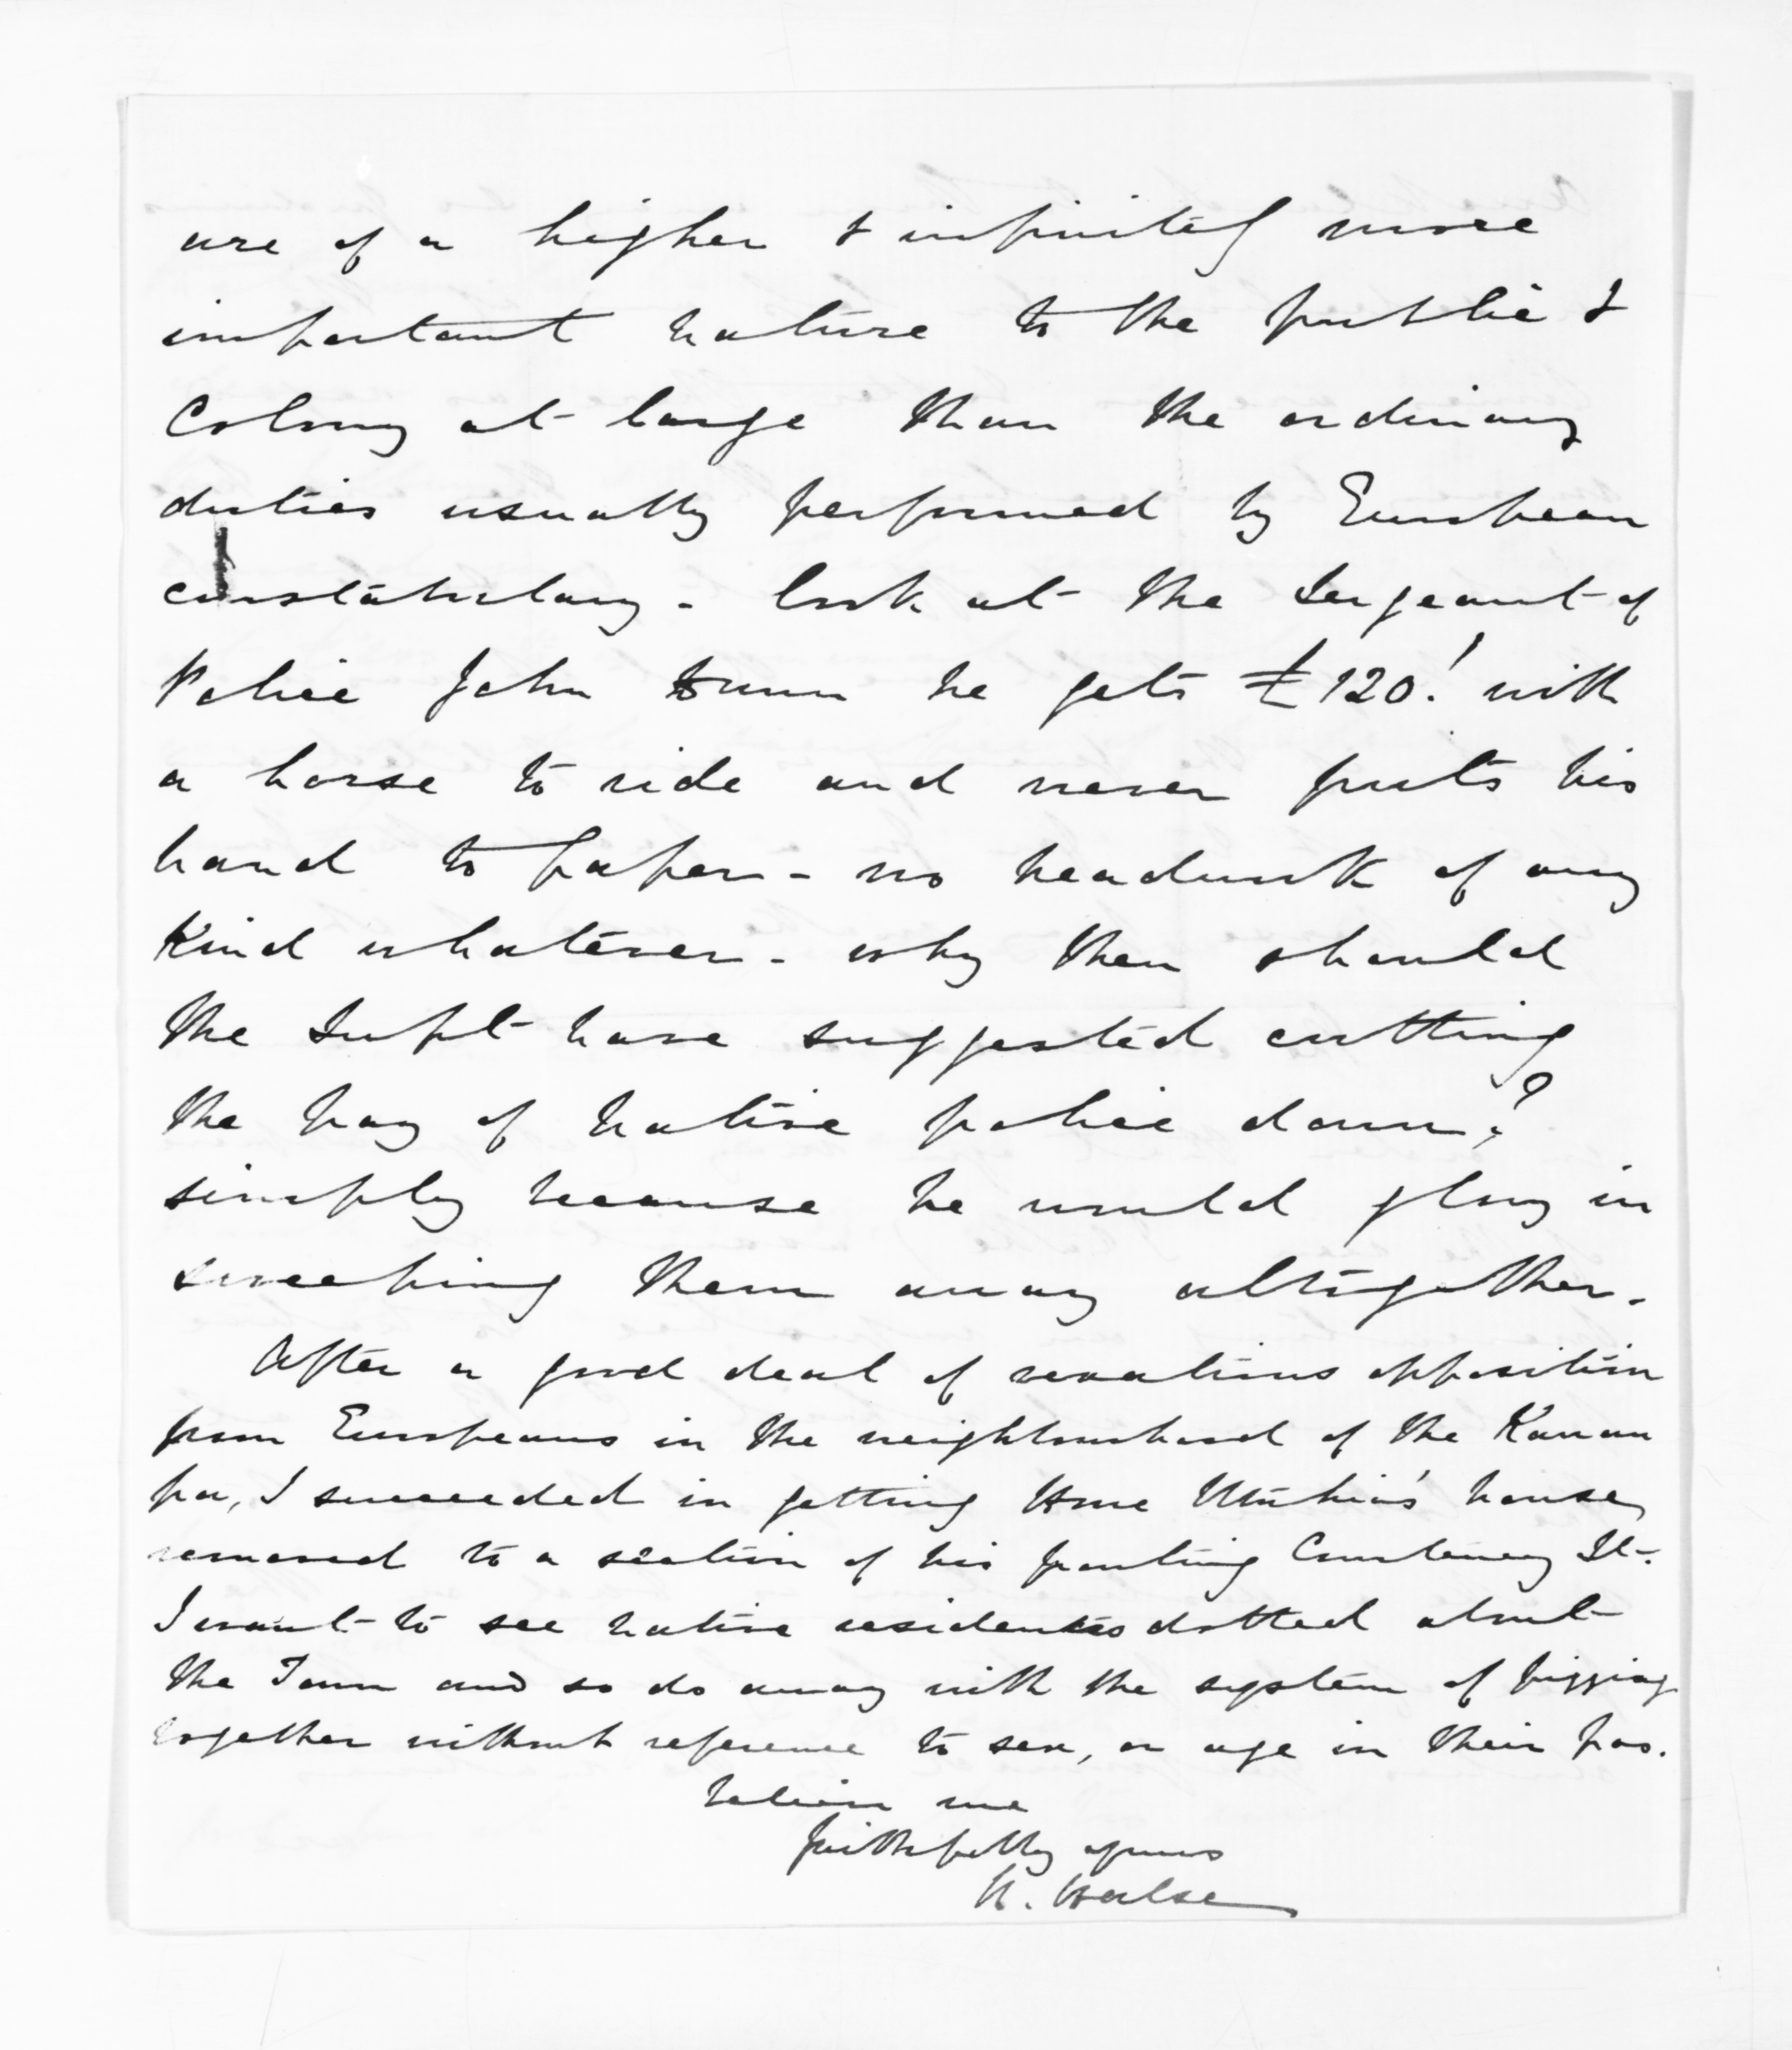 are of a higher & infinitely more
important nature to the public &
Colony at large than the ordinary
duties usually performed by European
constabulary - look at the Sergeant of
Police John he gets £120! with
a horse to ride and never puts his
hand to paper - no headwork of any
Kind whatever - why then should
the Supt have suggested cutting
the pay of native police down?
simply because he would glory in
sweeping them away altogether.
After a good deal of vexatious opposition
from Europeans in the neighbourhood of the
pa, I succeeded in getting Hone house
removed to a section of his fronting Courtenay St.
I want to see native residents dotted about
the Town and so do away with the system of pigging
together without reference to sex, or age in their pas.
believe me
faithfully yours
H. Halse